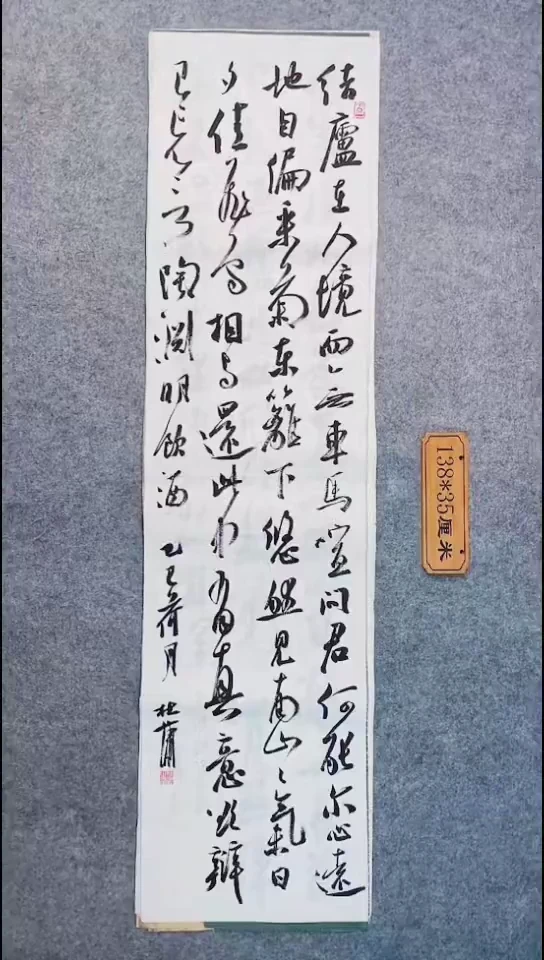 結廬在人境而无車馬喧問君何能尔心遠
地自偏采菊東籬下悠然見南山〻氣日
夕佳飛鳥相与還此中有真意欲辯
已忘言 陶淵明飲酒 乙巳荷月 杜
138*35厘米